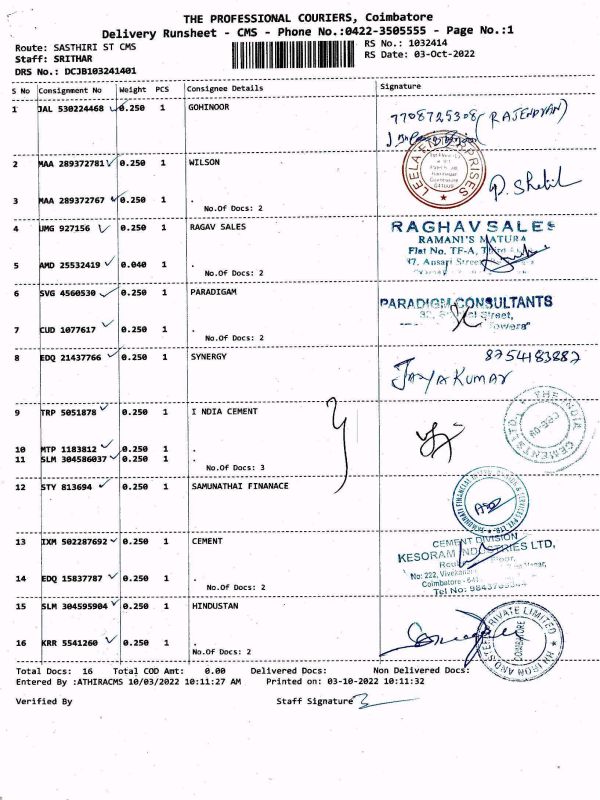 THE PROFESSIONAL COURIERS, Coimbatore
Delivery Runsheet - CMS - Phone No.:0422-3505555 - Page No.:1
Route: SASTHIRI ST CMS
RS No.: 1032414
Staff: SRITHAR
RS Date: 03-Oct-2022
DRS No.: DCJB103241401
S No Consignment No Weight PCS Consignee Details Signature
1 JAL 530224468 0.250 1 GOHINOOR
7708725308 (RAJENDVAN)
2 MAA 289372781 0.250 1 WILSON
LEELA ENTERPRISES
P. Shetil
3 MAA 289372767 0.250 1 .
No.Of Docs: 2
4 UMG 927156 0.250 1 RAGAV SALES
RAGHAV SALES
RAMANI'S MATURA
Flat No. TF-A, Third
37, Ansari Street
5 AMD 25532419 0.040 1 .
No.Of Docs: 2
6 SVG 4560530 0.250 1 PARADIGAM
PARADIGM CONSULTANTS
Street,
Towers"
7 CUD 1077617 0.250 1 .
No.Of Docs: 2
8 EDQ 21437766 0.250 1 SYNERGY
8754183882
JAYAKUMAR
9 TRP 5051878 0.250 1 I NDIA CEMENT
THE INDIA CEMENTS LTD.
CBE-09
10 MTP 1183812 0.250 1 .
11 SLM 304586037 0.250 1 .
No.Of Docs: 3
12 STY 813694 0.250 1 SAMUNATHAI FINANACE
13 IXM 502287692 0.250 1 CEMENT
CEMENT DIVISION
KESORAM INDUSTRIES LTD,
No: 222,
Coimbatore - 641
Tel No:
14 EDQ 15837787 0.250 1 .
No.Of Docs: 2
15 SLM 304595904 0.250 1 HINDUSTAN
HN IRON AND STEEL PRIVATE LIMITED
COIMBATORE
16 KRR 5541260 0.250 1 .
No.Of Docs: 2
Total Docs: 16 Total COD Amt: 0.00 Delivered Docs: Non Delivered Docs:
Entered By :ATHIRACMS 10/03/2022 10:11:27 AM Printed on: 03-10-2022 10:11:32
Verified By Staff Signature